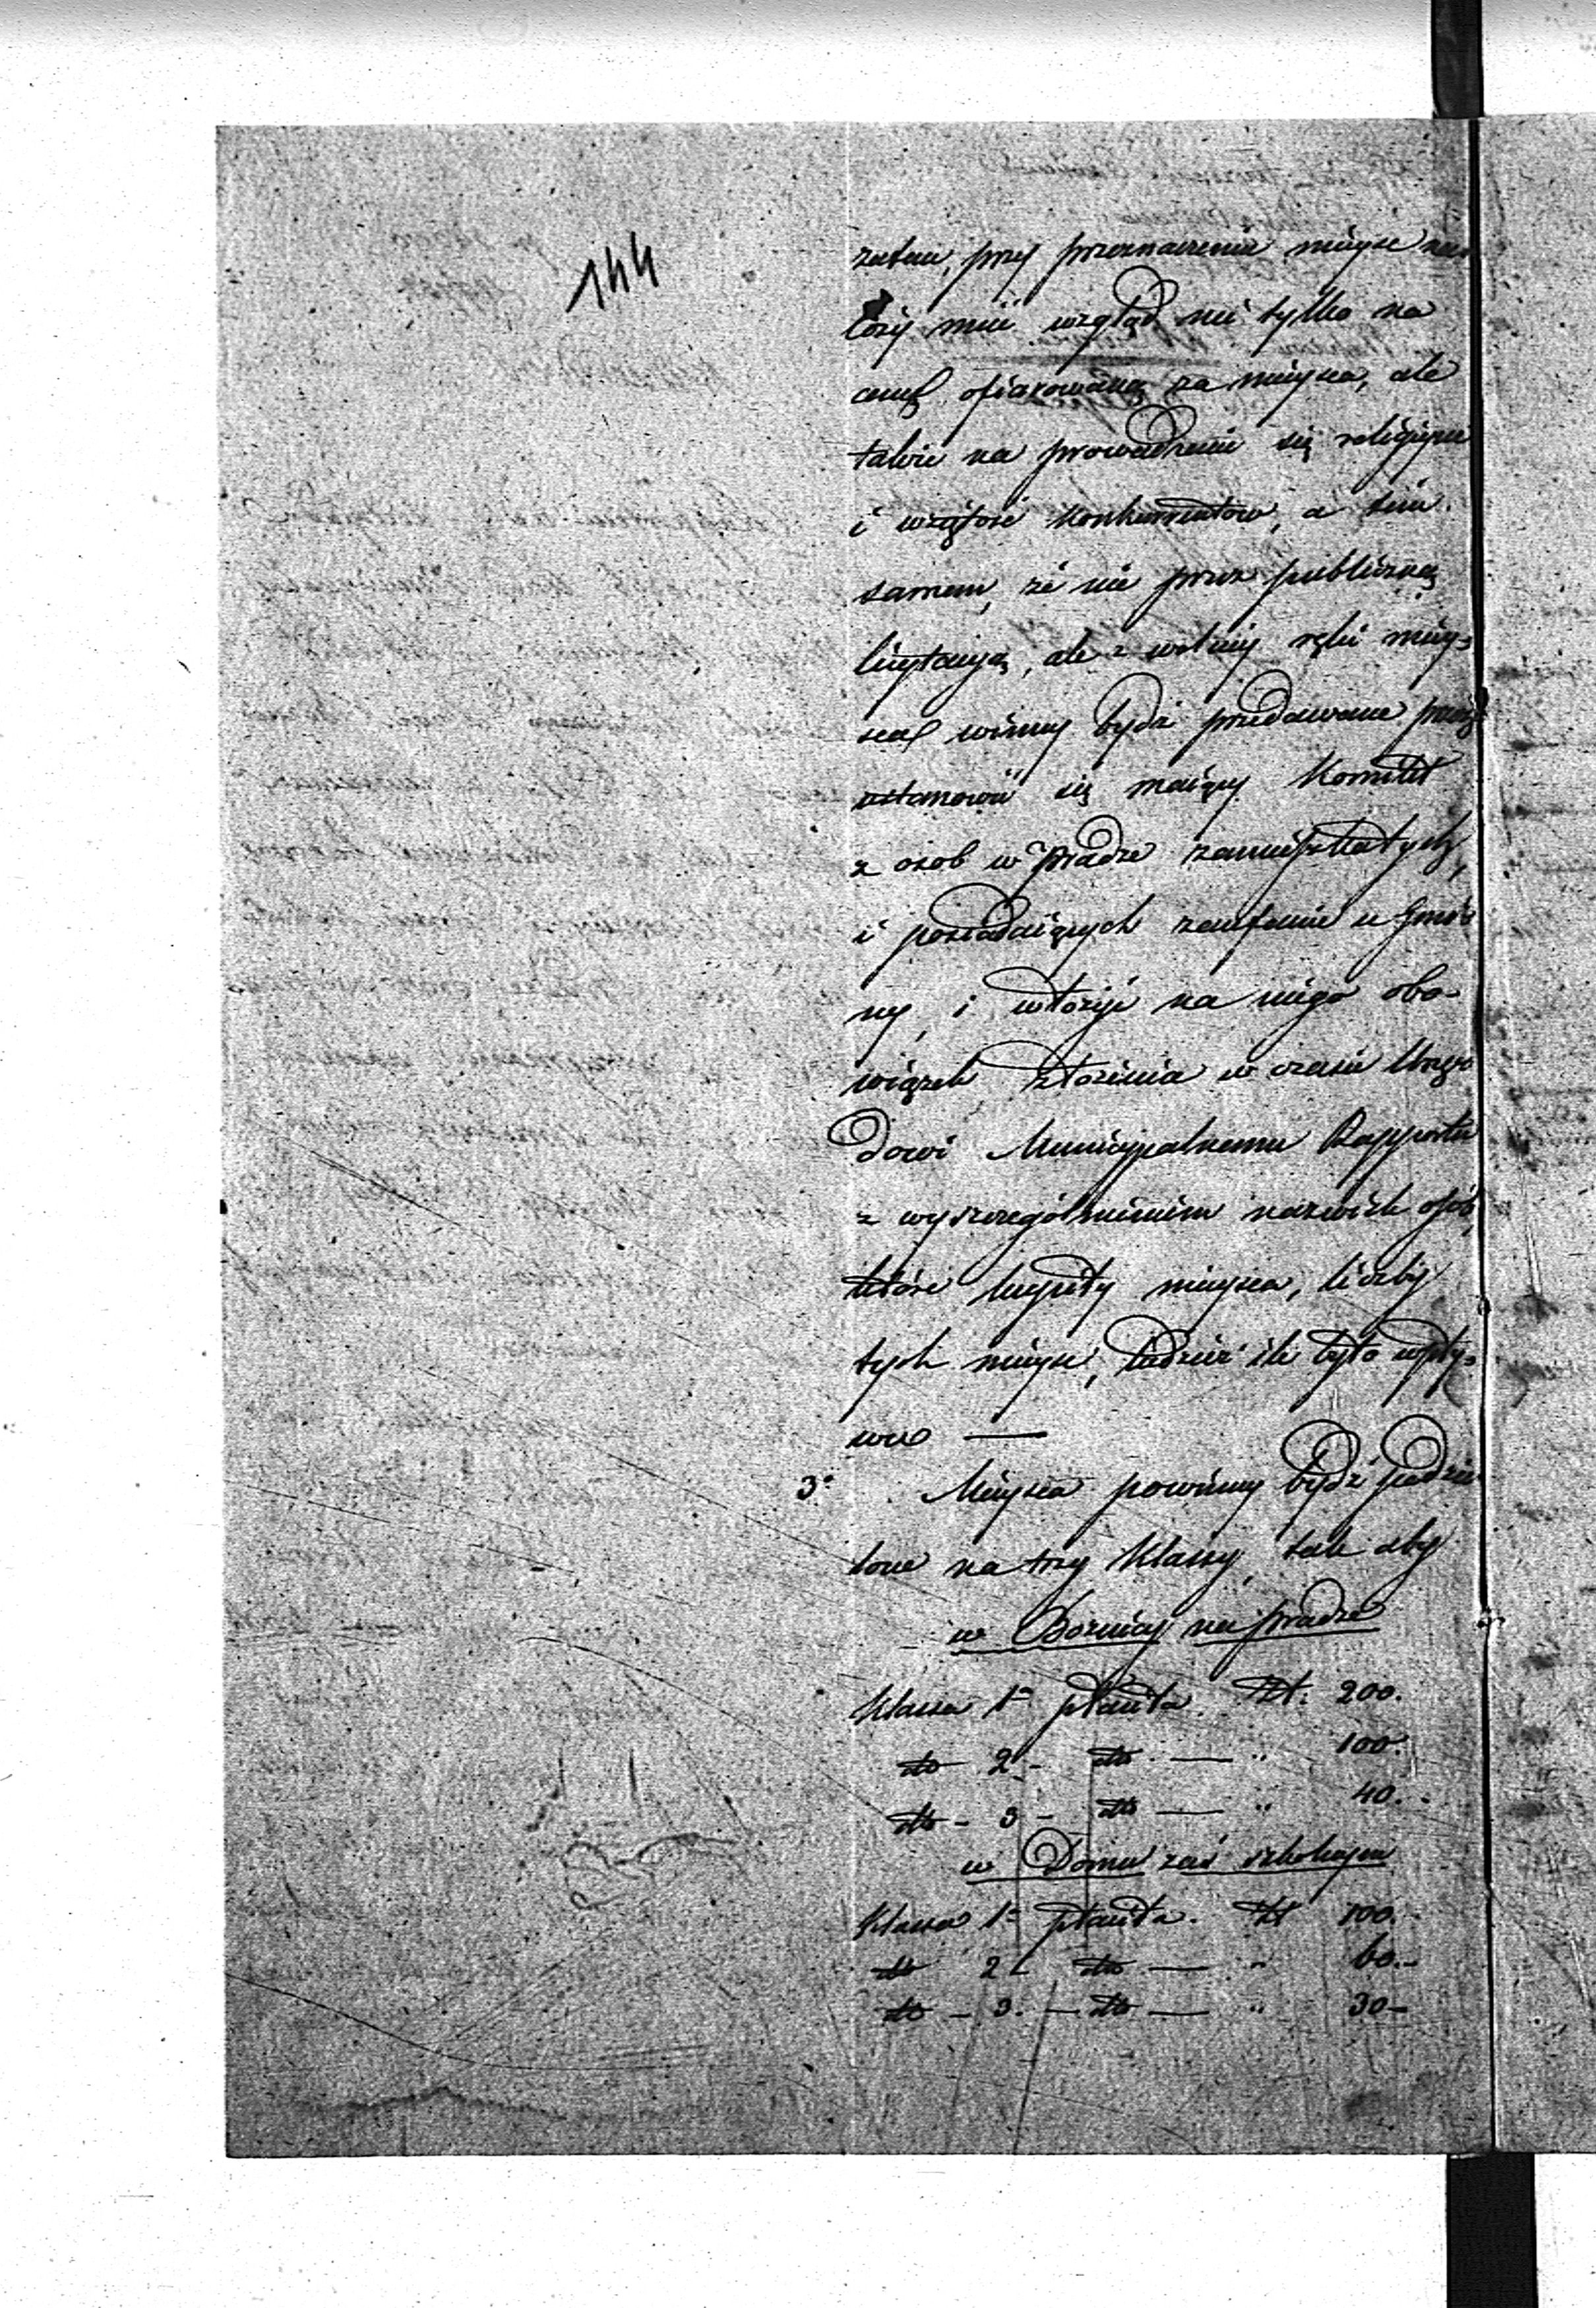 144
zatem, przy przeznaczeniu mieysc na
leży mieć wzgląd nie tylko na
cenę ofiarowaną za mieysca, ale
także na prowadzenie się religijne
i wziętość konkurentów, a tém
samem, że nie przez publiczną
licytacyą, ale z wolney ręki miey=
sca winny bydź przedawane przez
ustanowić się maiący Komitet
z osob w Pradze zamieszkałych,
i posiadaiących zaufanie u Gmi=
ny, i włożyć na niego obo-
wiązek złożenia w czasie Urzę=
dowi Municypalnemu Rapportu
z wyszczególnieniem nazwisk osób,
które kupiły mieysca, liczby
tych mieysc, tudzież ile było wpły=
wu —
3° Mieysca powinny bydź podzie
lone na trzy Klassy, tak aby
w Bożnicy na Pradze
Klassa 1a płaciła. Zł: 200.
dto 2 - dto — " 100.
dto - 3 - dto — " 40.
w Domu zaś szkolnym
Klassa 1a płaciła. Zł 100.
dto 2 - dto — " 60.-
dto - 3. - dto — " 30-